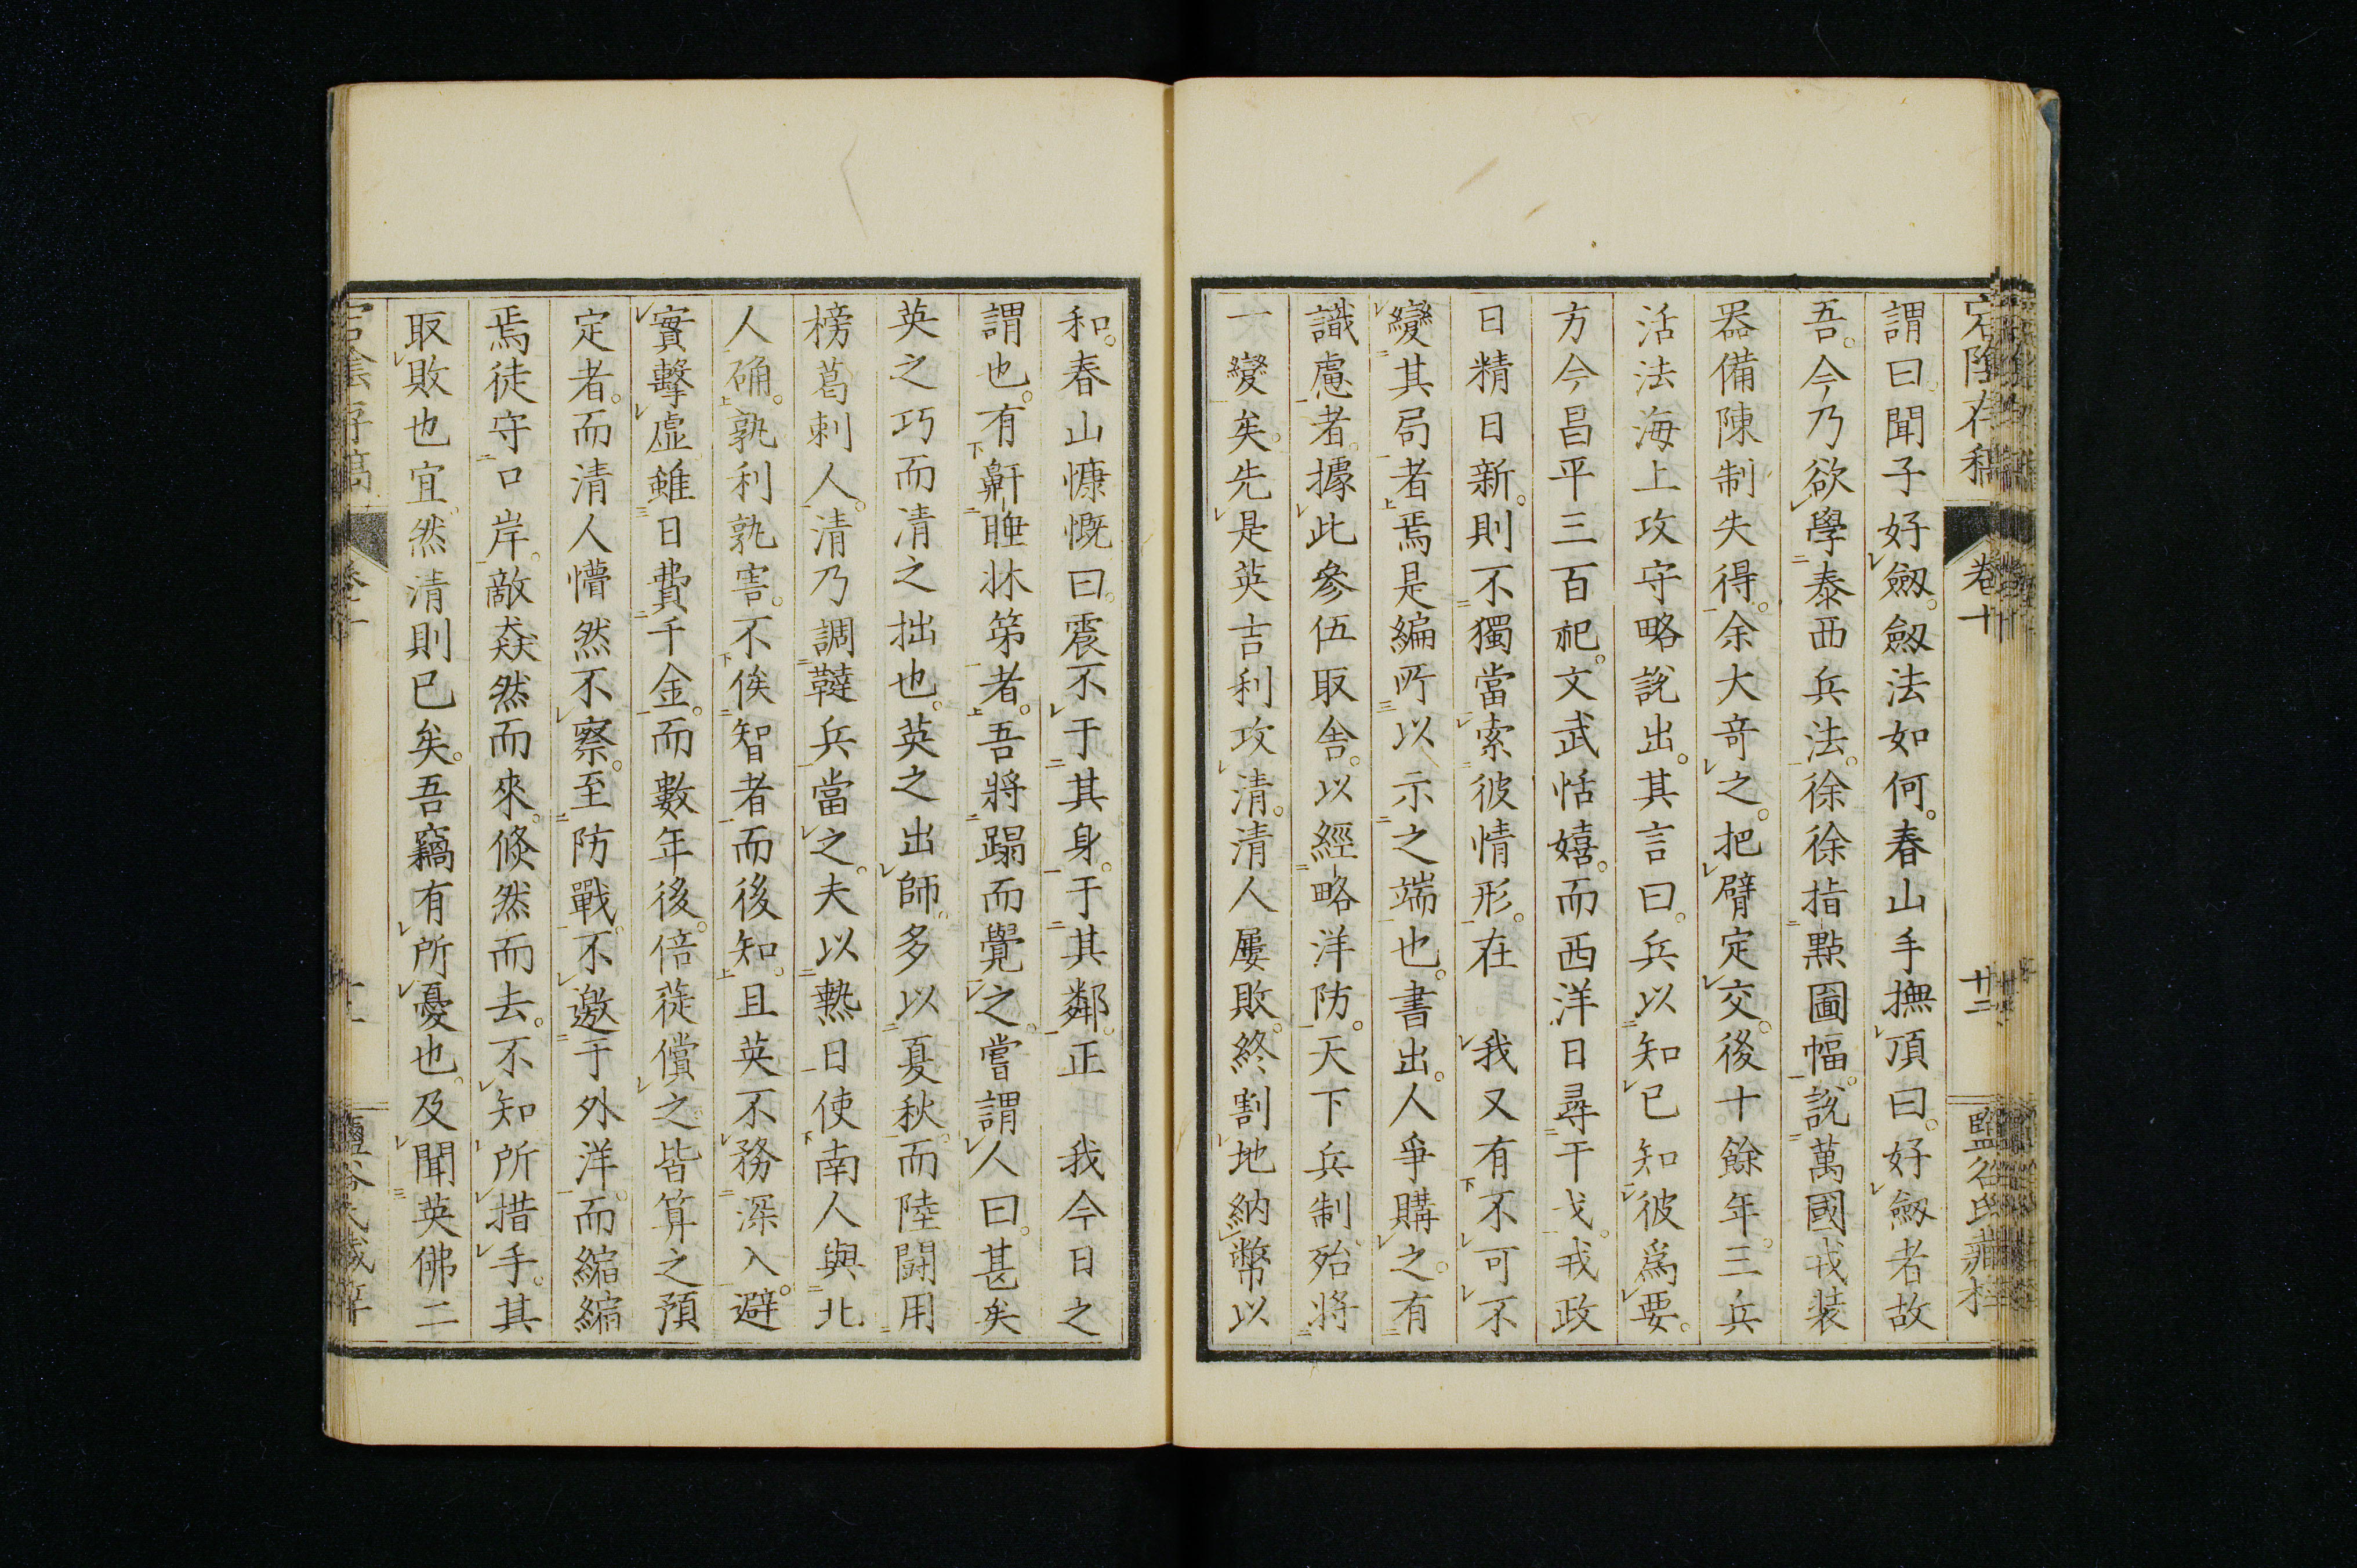 宕陰存稿 卷十 廿二 監谷氏藏板
謂曰。聞子好劔。劔法如何。春山手撫頂曰。好劔者故
吾。今乃欲學泰西兵法。徐徐指點圖幅。說萬國戎裝
器備陳制失得。余大奇之。把臂定交。後十餘年。三兵
活法海上攻守略說出。其言曰。兵以知已知彼爲要。
方今昌平三百祀。文武恬嬉。而西洋日尋干戈。戎政
日精日新。則不獨當索彼情形。在 我又有不可不
變其局者焉。是編所以示之端也。書出。人爭購之。有
識慮者。據此參伍取舍。以經略洋防。天下兵制殆將
一變矣。先是英吉利攻清。清人屢敗。終割地納幣以
和。春山慷慨曰。震不于其身。于其鄰。正 我今日之
謂也。有鼾睡牀笫者。吾將蹋而覺之。嘗謂人曰。甚矣
英之巧而清之拙也。英之出師。多以夏秋。而陸鬪用
榜葛剌人。清乃調韃兵當之。夫以熱日使南人與北
人确。孰利孰害。不俟智者而後知。且英不務深入。避
實擊虛。雖日費千金。而數年後。倍蓰償之。皆算之預
定者。而清人懵然不察。至防戰。不邀于外洋。而縮縮
焉徒守口岸。敵猋然而來。倏然而去。不知所措手。其
取敗也宜。然清則已矣。吾竊有所憂也。及聞英佛二